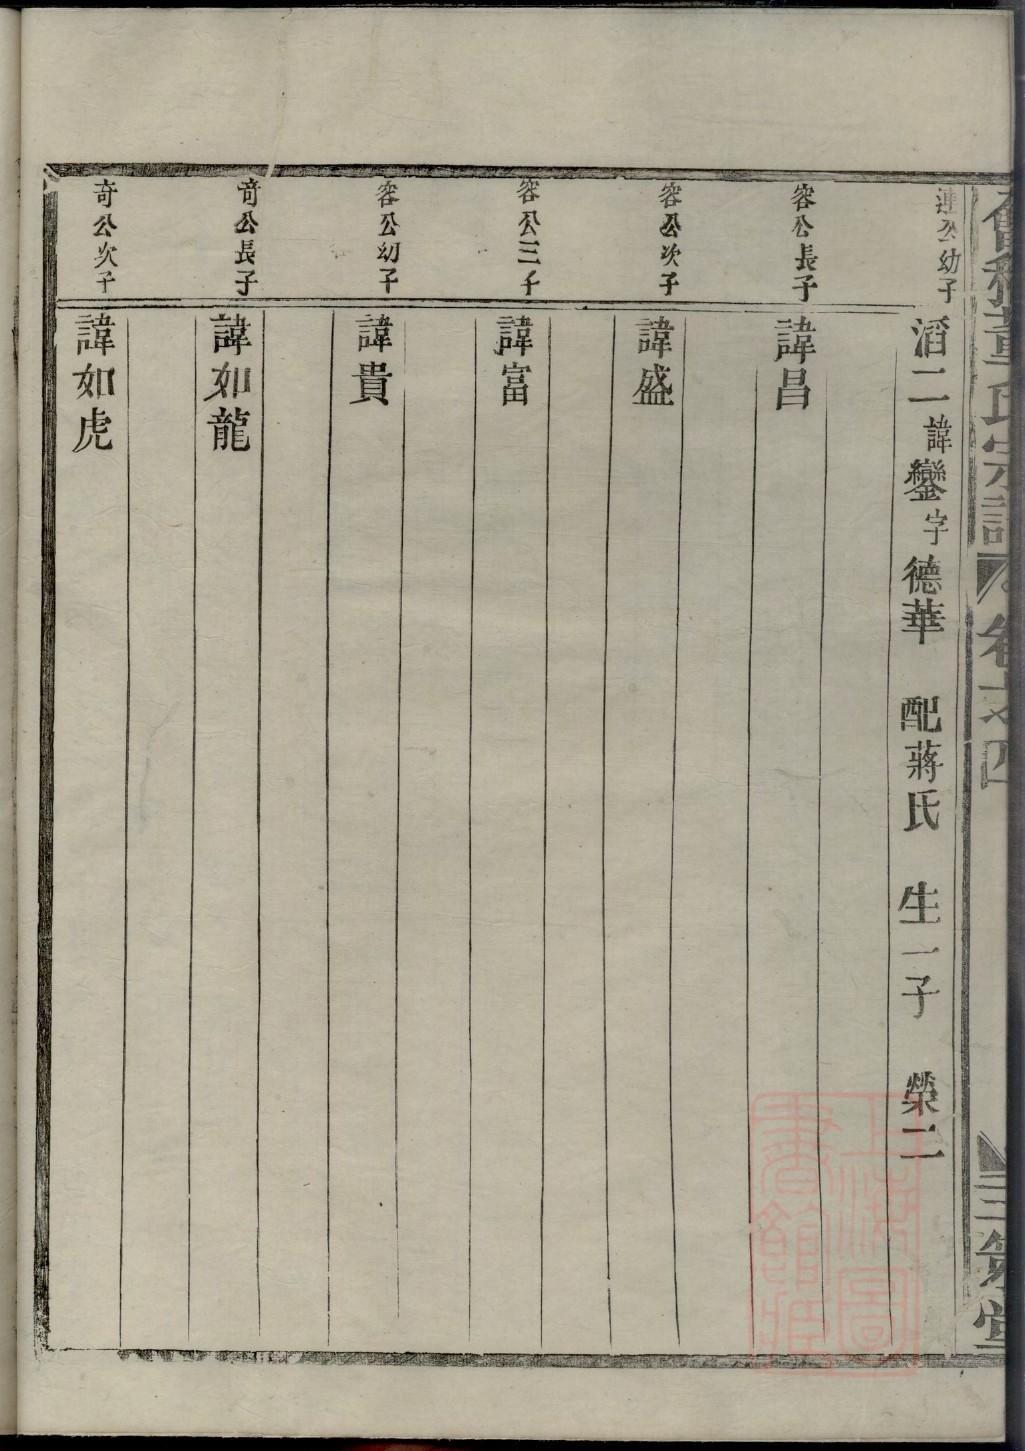 董氏宗譜 卷之四 三策堂
連公幼子
滔二諱鑾字德華 配蔣氏 生一子 榮二
容公長子
諱昌
容公次子
諱盛
容公三子
諱富
容公幼子
諱貴
奇公長子
諱如龍
奇公次子
諱如虎
上海圖書館藏